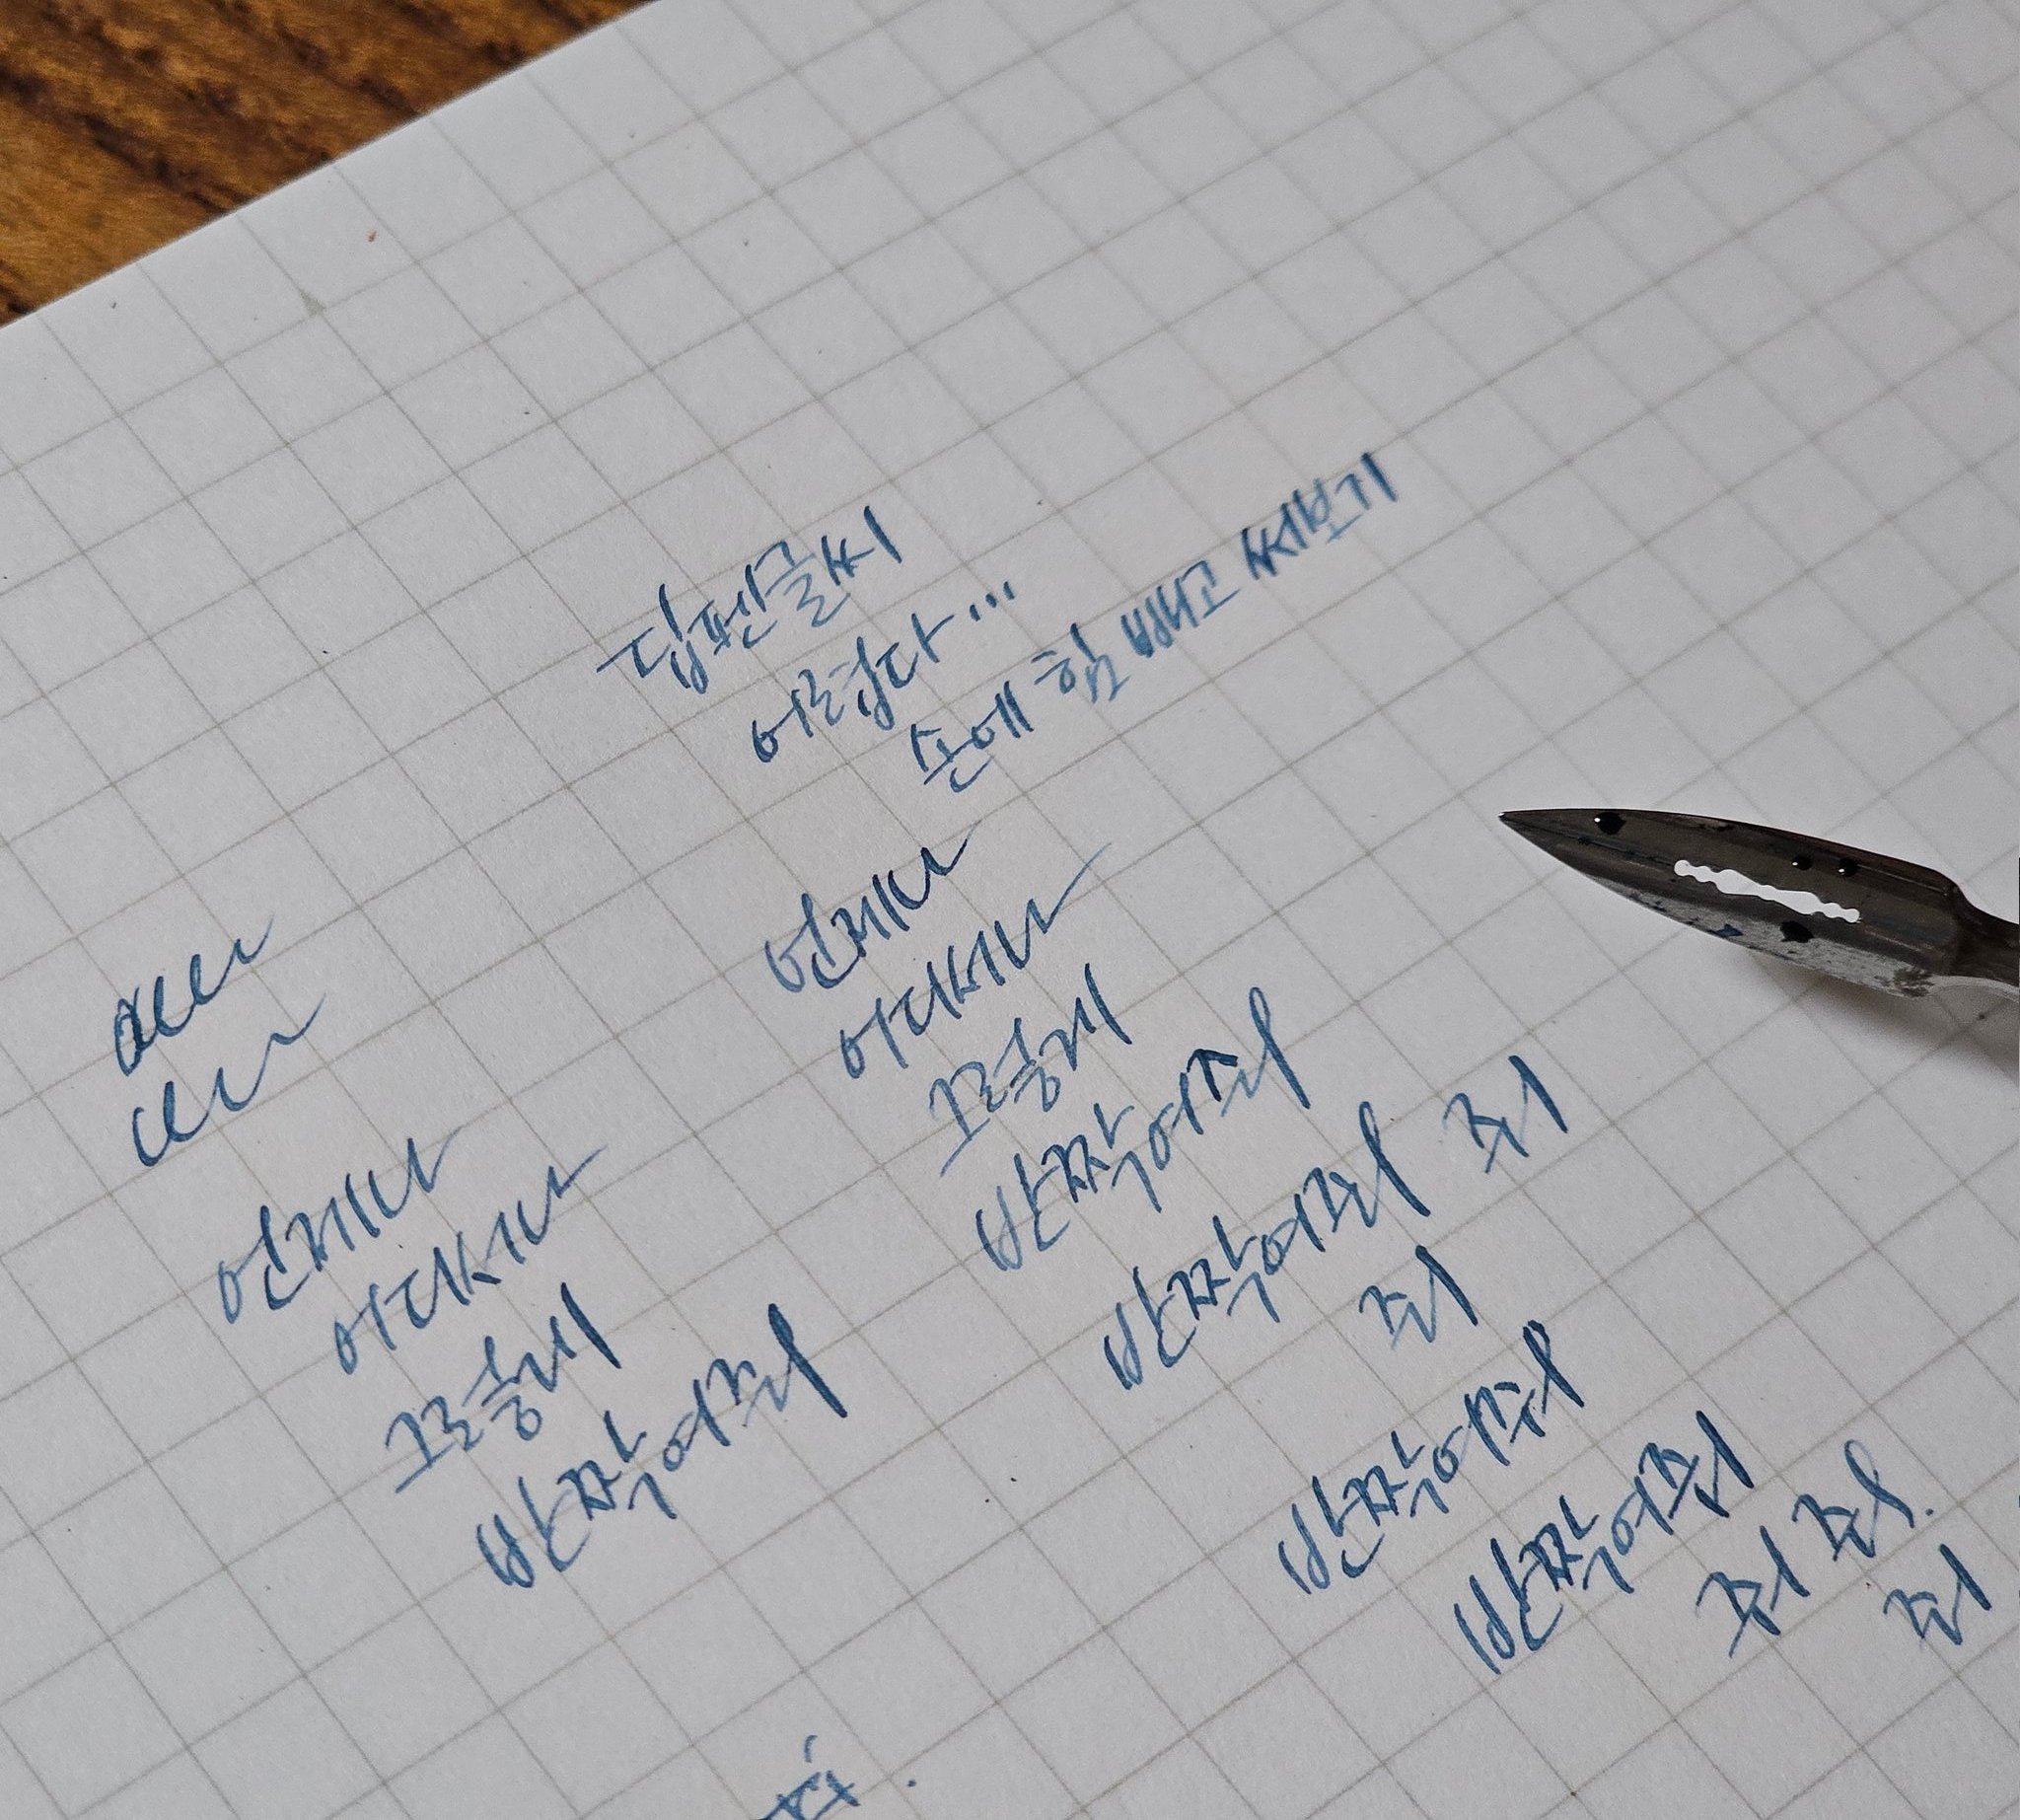 딥펜글씨
어렵다...
손에 힘 빼고 써보기
언제나
어디서나
교홍이
반짝여줘
반짝여줘 줘
줘
반짝여줘
반짝여줘
줘 줘.
줘
언제나
어디서나
교홍이
반짝여줘